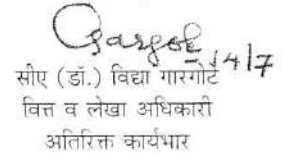 14/7
सीए (डॉ.) विद्या गारगोटे
वित्त व लेखा अधिकारी
अतिरिक्त कार्यभार